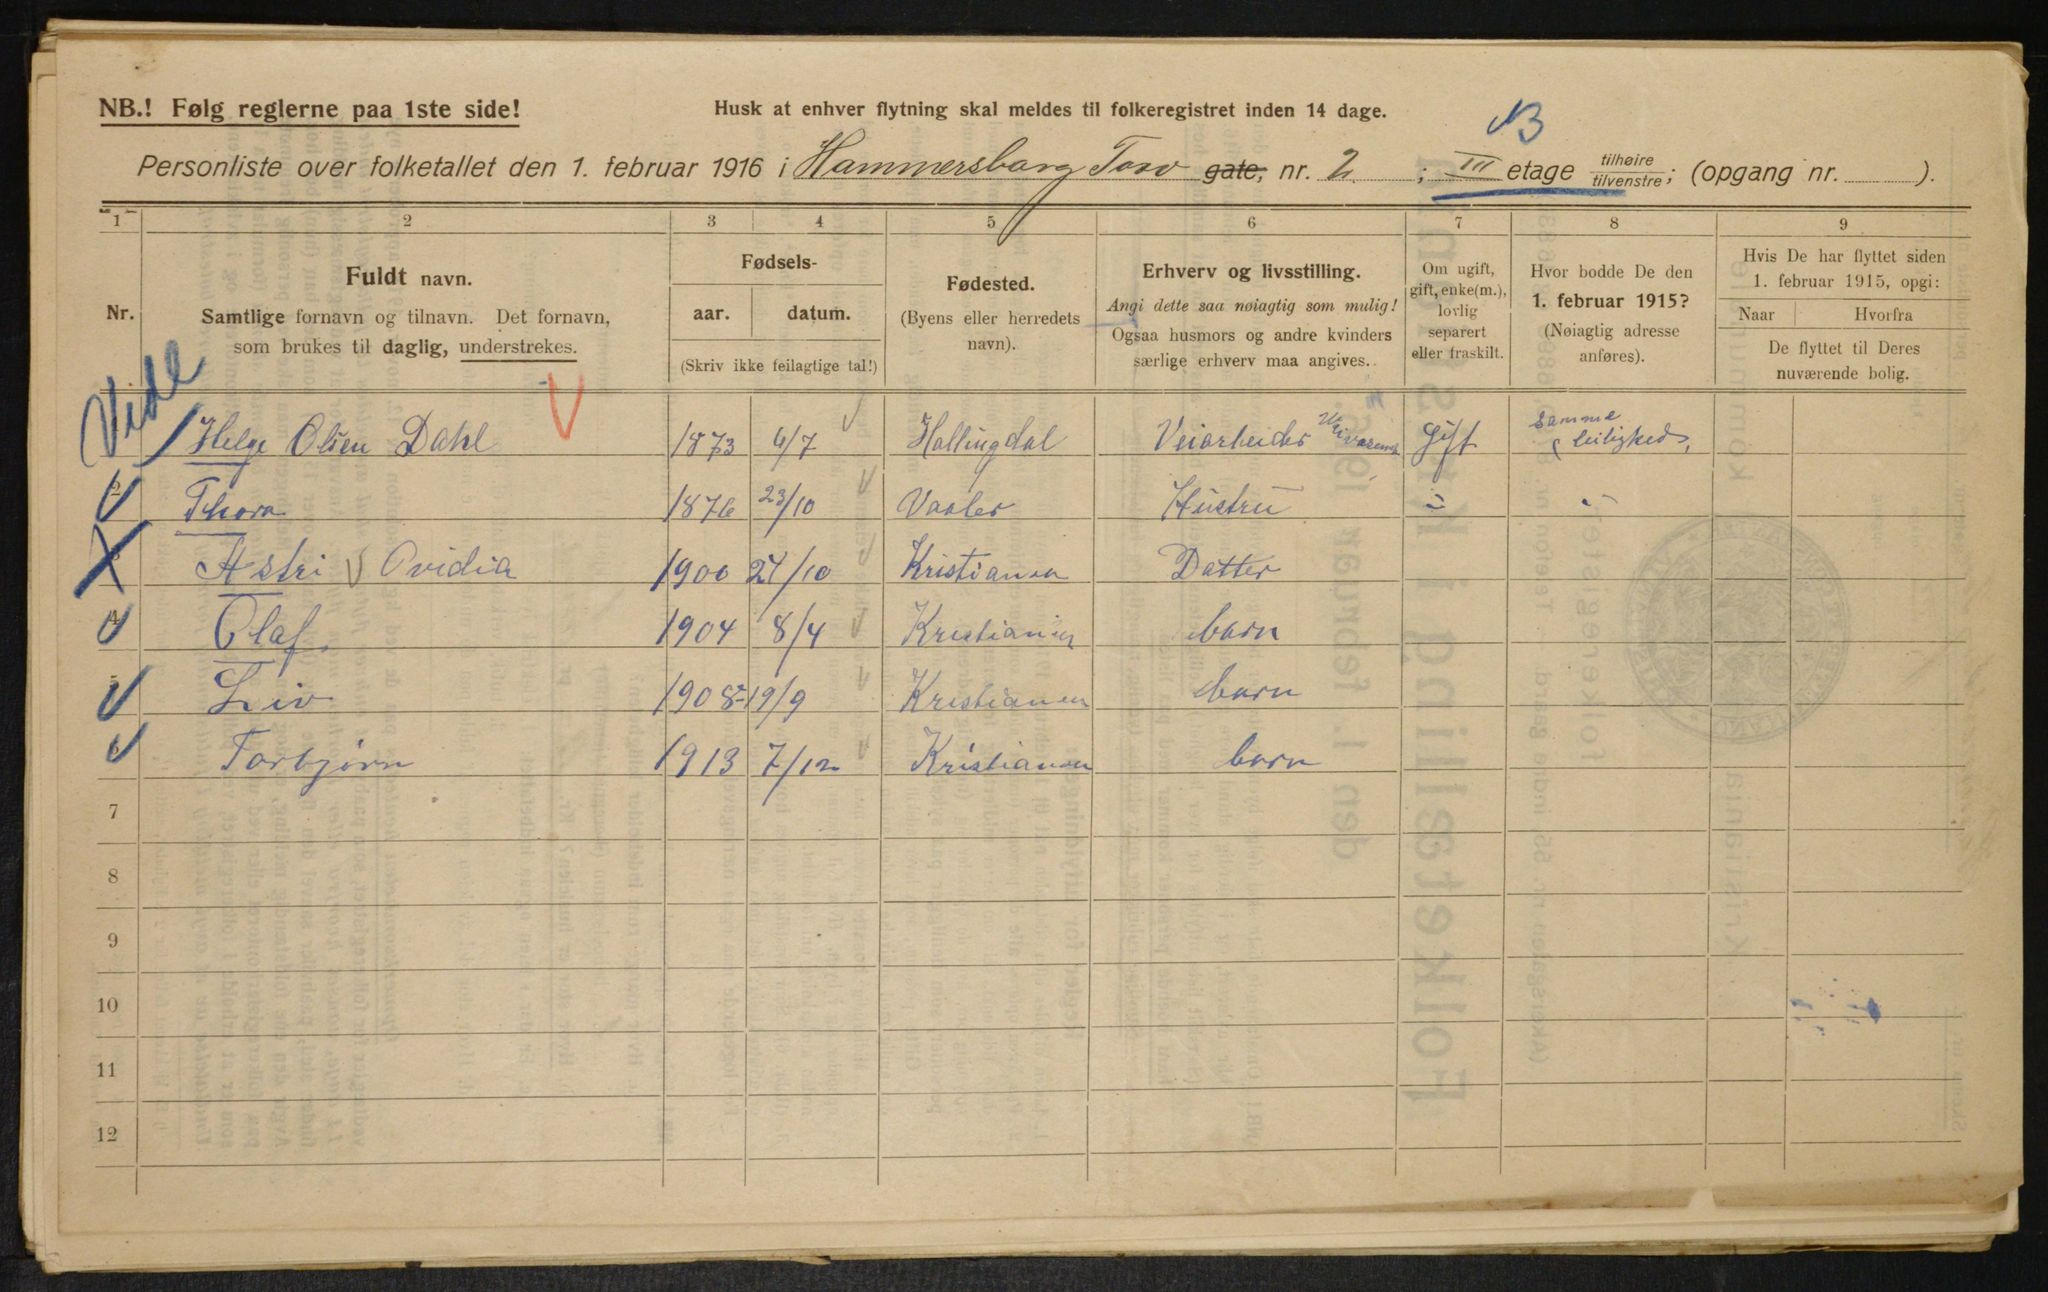 NB.! Følg reglerne paa 1ste side!
Husk at enhver flytning skal meldes til folkeregistret inden 14 dage.
Personliste over folketallet den 1. februar 1916 i Hammersborg Torv gate, nr. 2 ; III etage tilhøire tilvenstre; (opgang nr. ).
1 2 3 4 5 6 7 8 9
Nr.
Fuldt navn.
Samtlige fornavn og tilnavn. Det fornavn,
som brukes til daglig, understrekes.
Fødsels-
aar. datum.
(Skriv ikke feilagtige tal!)
Fødested.
(Byens eller herredets
navn).
Erhverv og livsstilling.
Angi dette saa nøiagtig som mulig!
Ogsaa husmors og andre kvinders
særlige erhverv maa angives.
Om ugift,
gift, enke(m.),
lovlig
separert
eller fraskilt.
Hvor bodde De den
1. februar 1915?
(Nøiagtig adresse
anføres).
Hvis De har flyttet siden
1. februar 1915, opgi:
Naar Hvorfra
De flyttet til Deres
nuværende bolig.
Vide
Helge Olsen Dahl 1873 6/7 Hallingdal Veiarbeider Gift samme leilighed
2 Thora 1876 23/10 Vaaler Hustru " "
3 Astri Ovidia 1900 24/10 Kristiania Datter
4 Olaf 1904 8/4 Kristiania barn
5 Liv 1908 19/9 Kristiania barn
6 Torbjørn 1913 7/12 Kristiania barn
7
8
9
10
11
12